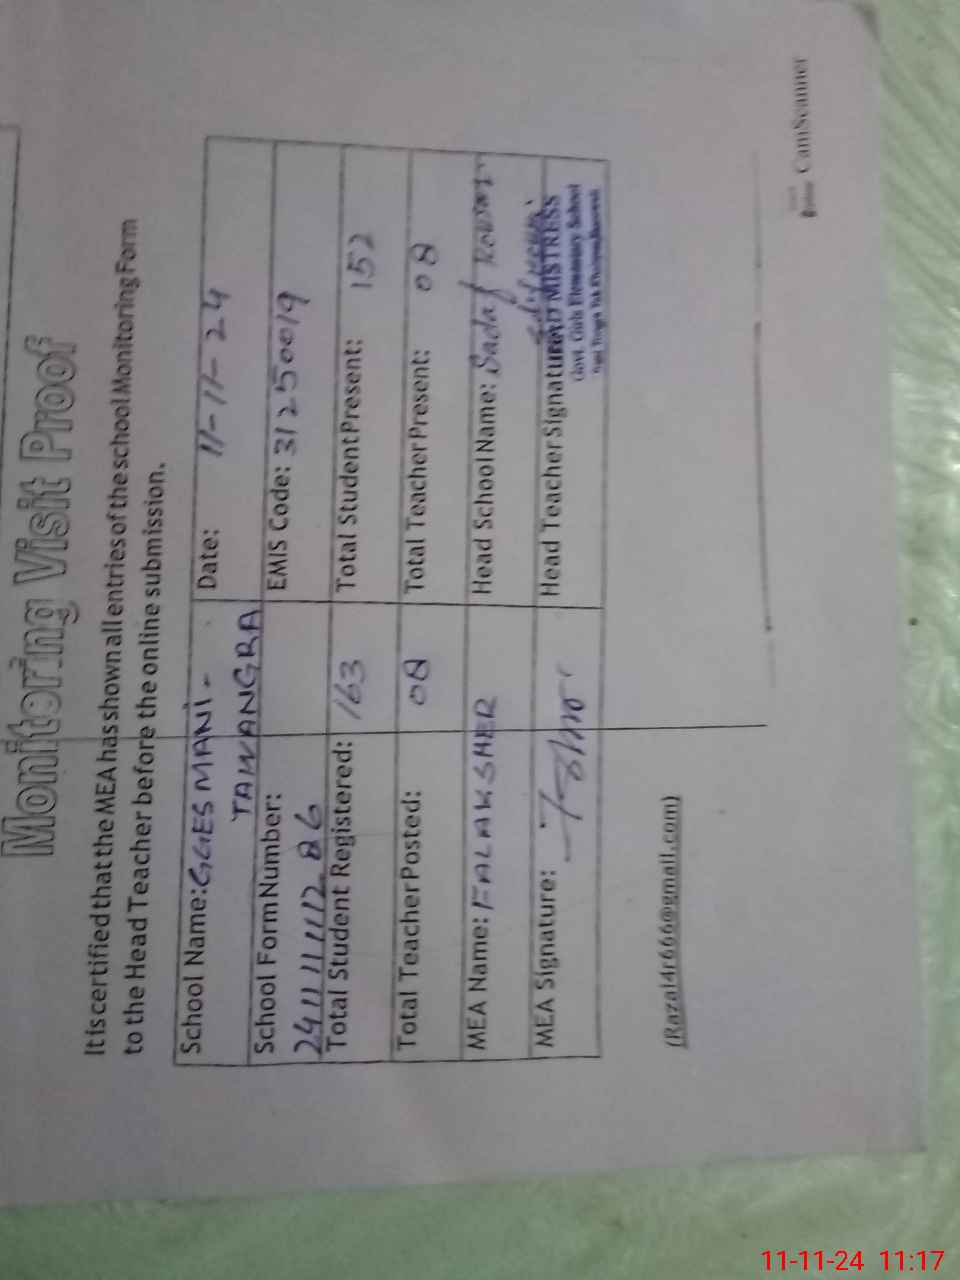 Monitoring Visit Proof
It is certified that the MEA has shown all entries of the school Monitoring Form
to the Head Teacher before the online submission.
School Name: GGES MANI-
TAWANGRA
Date: 11-11-24
School Form Number:
24111111286
EMIS Code: 31250019
Total Student Registered: 163
Total Student Present: 152
Total Teacher Posted: 08
Total Teacher Present: 08
MEA Name: FALAKSHER
Head School Name: Sadaf
MEA Signature:
Head Teacher Signature:
HEAD MISTRESS
Govt. Girls Elementary School
(Razal4r666@gmail.com)
CamScanner
11-11-24 11:17